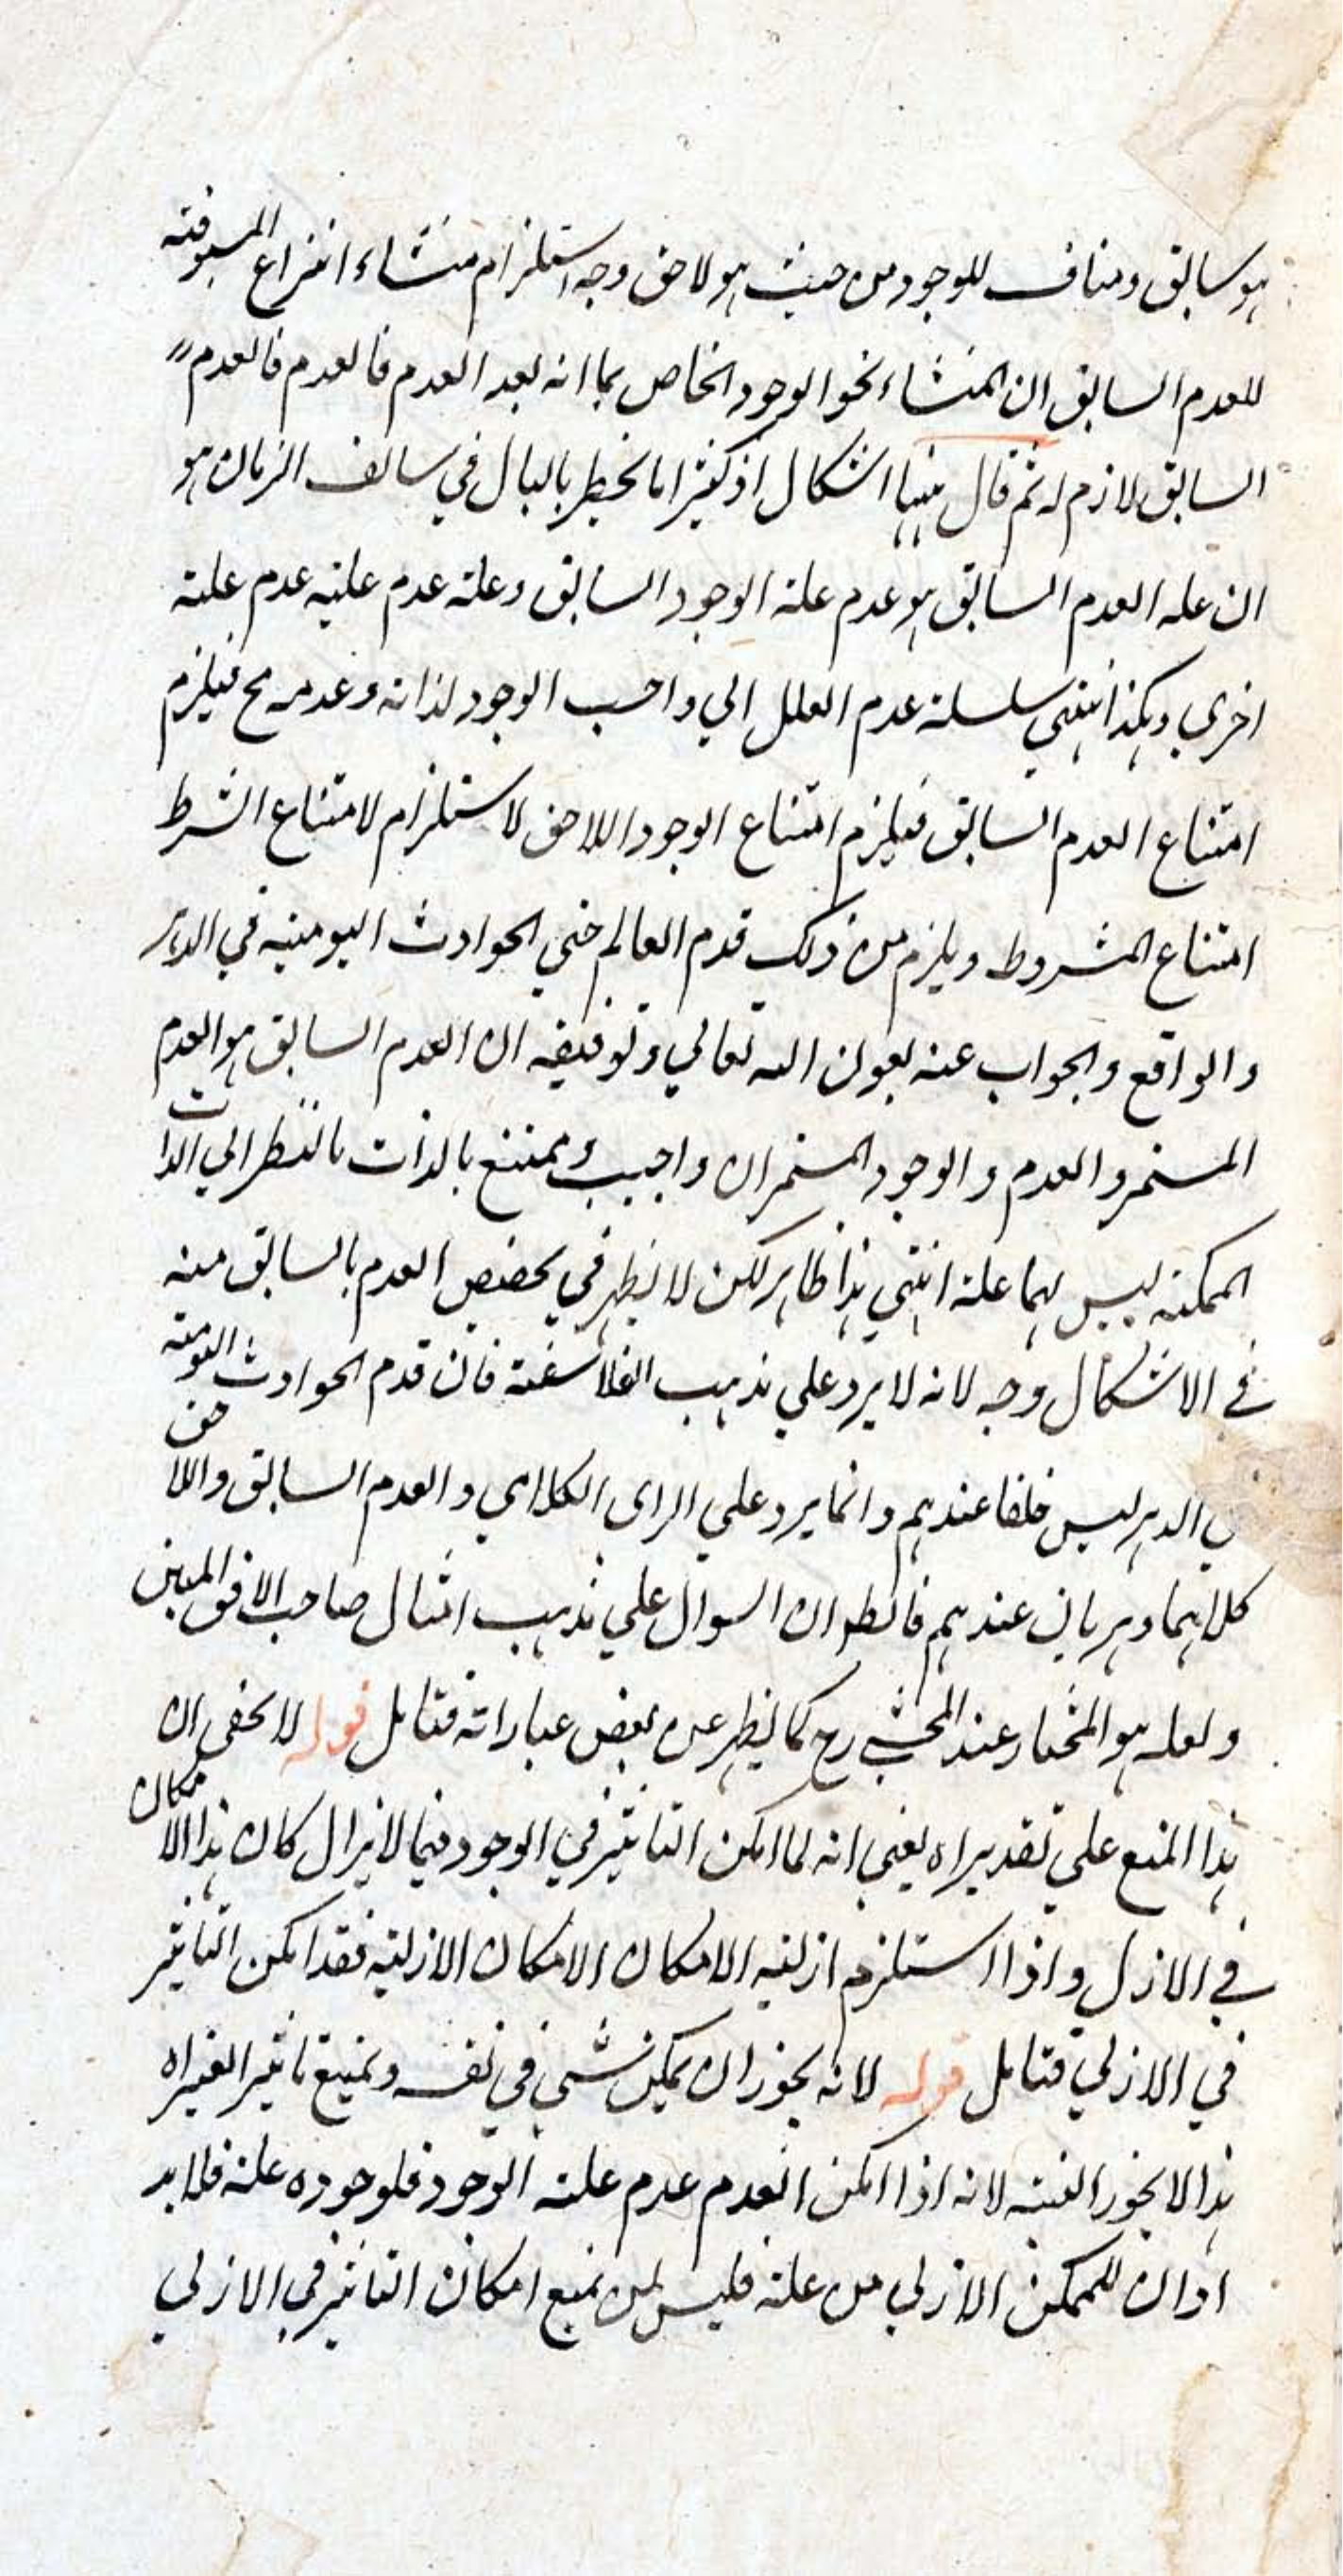 هو سابق ومناف للوجود من حيث هو لاحق وجه استلزام منشاء انتزاع المسبوقية
للعدم السابق ان المنشاء نحو الوجود الخاص بما انه بعد العدم فالعدم فالعدم
السابق لازم له ثم قال ههنا اشكال اذ كثيرا ما يخطر بالبال في سالف الزمان هو
ان عله العدم السابق هو عدم علة الوجود السابق وعلة عدم عليه عدم علية
اخري وهكذا ينتهي سلسلة عدم العلل الي واجب الوجود لذاته وعدمه مح فيلزم
امتناع العدم السابق فيلزم امتناع الوجود اللاحق لاستلزام لامتناع الشرط
امتناع المشروط ويلزم من ذلك قدم العالم حتي الحوادث اليومية في الدهر
والواقع والجواب عنه بعون الله تعالي وتوفيقه ان العدم السابق هو العدم
المستمر والعدم والوجود المستمران واجب وممتنع بالذات بالنظر الي الذات
الممكنة ليس لهما علة انتهي هذا ظاهر لكن لا يظهر في تخصيص العدم بالسابق منه
في الاشكال وجه لانه لا يرد علي مذهب الفلاسفة فان قدم الحوادث اليومية
في الدهر ليس خلفا عندهم وانما يرد علي الراى الكلامي والعدم السابق واللاحق
كلاهما دهريان عندهم فالظ ان السوال علي مذهب امثال صاحب الافق المبين
ولعله هو المختار عند المحشي رح كما يظهر عن بعض عباراته فتامل قوله لا يخفى ان
هذا المنع علي تقديراه يعني انه لما امكن التاثير في الوجود فيما لا يزال كان هذا الامكان
في الازل واذا استلزم ازلية الامكان الامكان الازلية فقد امكن التاثير
في الازلي فتامل قوله لانه يجوز ان يمكن شي في نفسه ويمتنع تاثير الغير اه
هذا لا يجوز البتة لانه اذا امكن العدم عدم علة الوجود فلوجوده علة فلا بد
اذ ان للممكن الازلي من علة فليس لمن يمنع امكان التاثير في الازلي